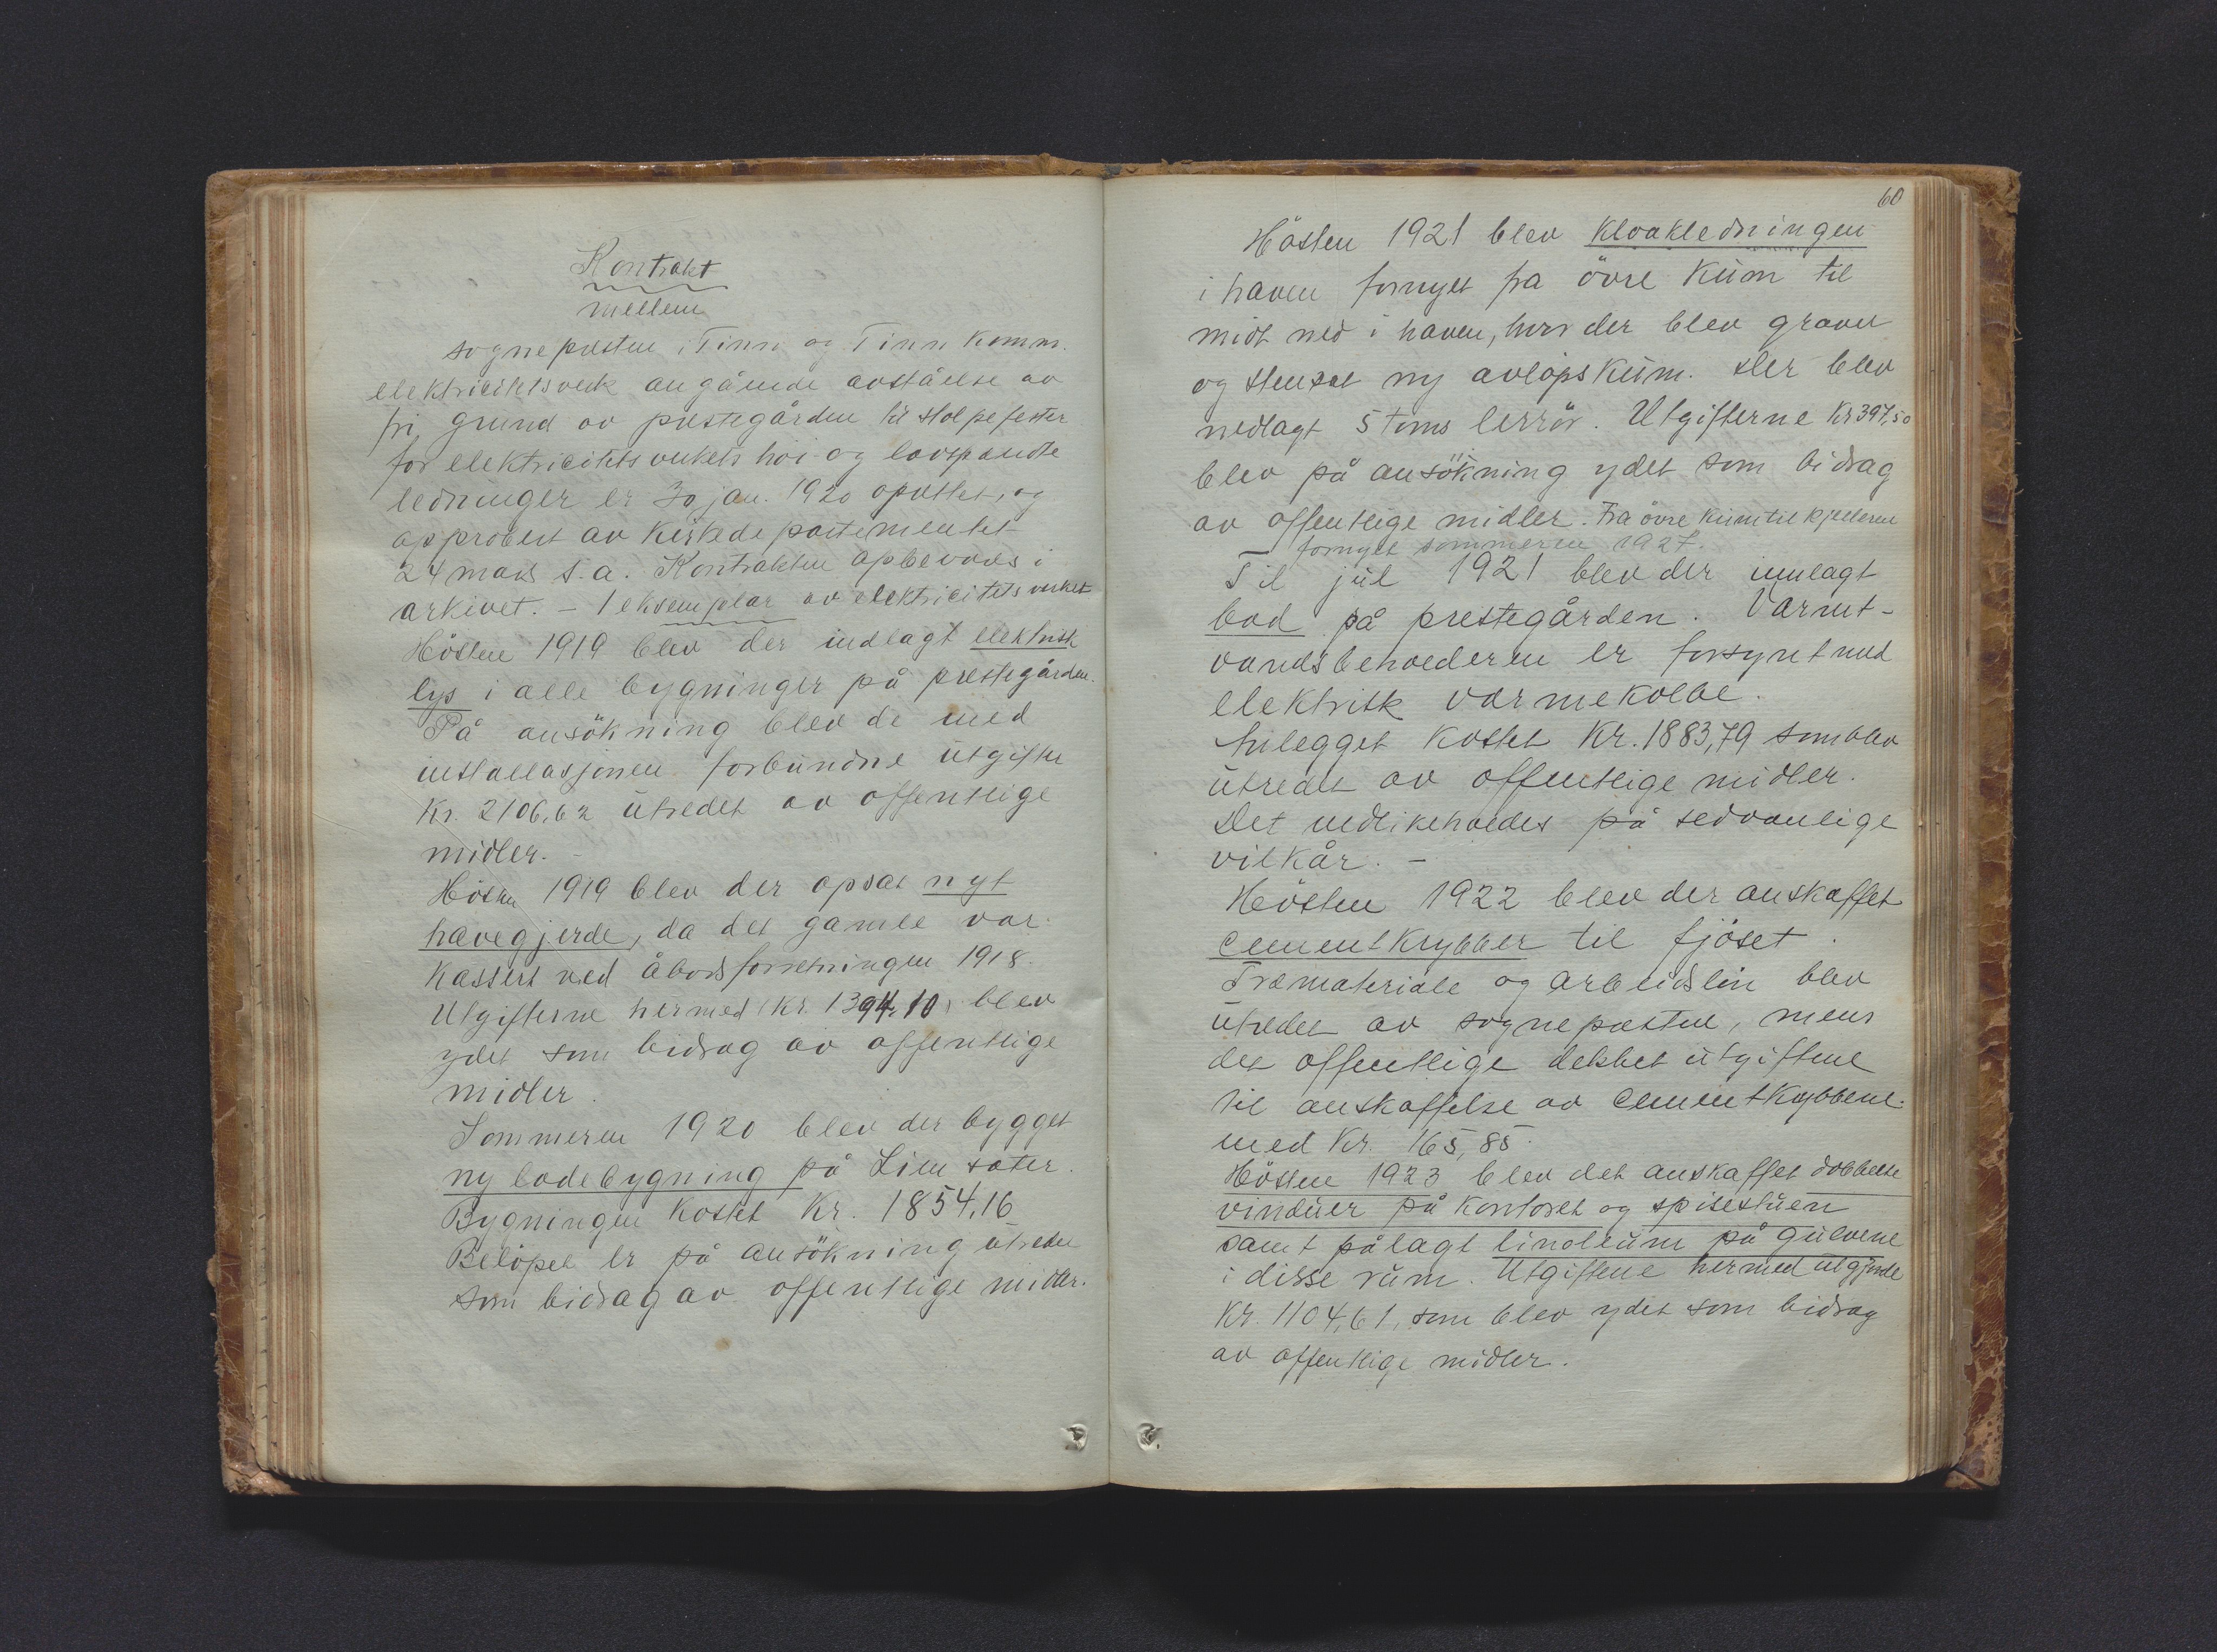 Kontrakt
mellem
sognepresten i Tinn og Tinn komm.
elektricitetsverk angående avståelse av
fri grund av prestegården til stolpefester
for elektricitetsverkets höi- og lavspændte
ledninger er 30 jan. 1920 oprettet, og
approbert av Kirkedepartementet
24 mars s.a. Kontrakten opbevares i
arkivet. - 1 eksemplar av elektricitetsverket
Hösten 1919 blev der indlagt elektrisk
lys i alle bygninger på prestegården.
På ansökning blev de med
installasjonen forbundne utgifter
Kr. 2106,62 utredet av offentlige
midler. -
Hösten 1919 blev der opsat nyt
havegjerde, da det gamle var
kassert ved åbodsforretningen 1918.
Utgifterne hermed (kr. 1394,10) blev
ydet som bidrag av offentlige
midler.
Sommeren 1920 blev der bygget
ny lodebygning på Lien sæter.
Bygningen kostet Kr. 1854,16
Belöpet er på ansökning utredet
som bidrag av offentlige midler.
60
Hösten 1921 blev kloakledningen
i haven fornyet fra övre kum til
midt ned i haven, hvor der blev gravet
og stensat ny avlöpskum. Der blev
nedlagt 5 toms lerrör. Utgifterne kr 397,50
blev på ansökning ydet som bidrag
av offentlige midler. Fra övre kum til kjelleren
fornyet sommeren 1927.
Til jul 1921 blev der innlagt
bad på prestegården. Varmt-
vandsbeholderen er forsynt med
elektrisk varmekolbe.
Anlegget kostet Kr. 1883,79 som blev
utredet av offentlige midler.
Det vedlikeholdes på sedvanlige
vilkår. -
Hösten 1922 blev der anskaffet
cementkrybber til fjöset.
Træmateriale og arbeidslön blev
utredet av sognepresten, mens
det offentlige dekket utgiftene
til anskaffelse av cementkrybbene
med Kr. 165,85.
Hösten 1923 blev det anskaffet dobbelte
vinduer på kontoret og spisestuen
samt pålagt linoleum på gulvene
i disse rum. Utgiftene hermed utgjorde
Kr. 1104,61, som blev ydet som bidrag
av offentlige midler.